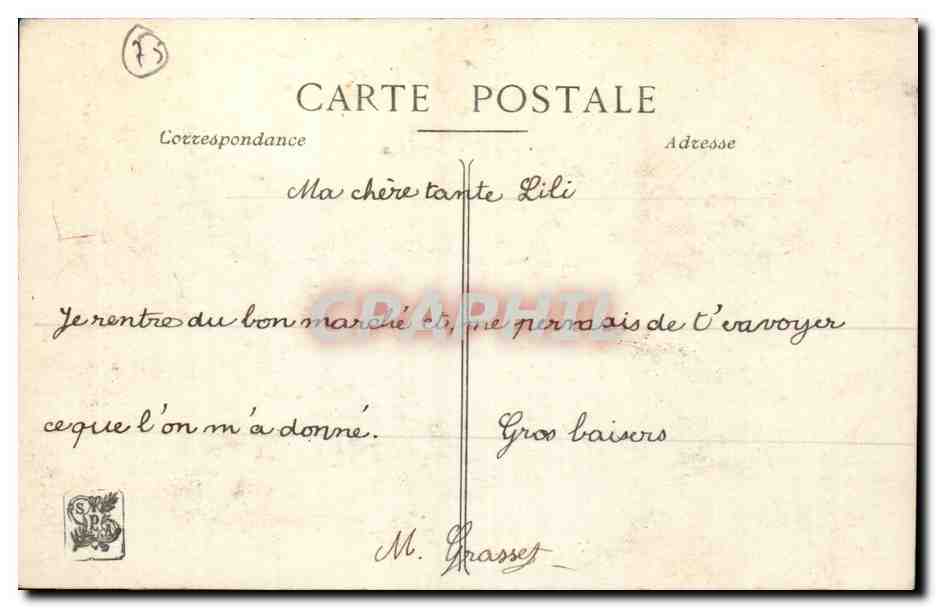 75
CARTE POSTALE
Correspondance
Adresse
Ma chère tante Lili
Je rentre du bon marché et, me permais de t'envoyer
ce que l'on m'a donné. Gros baisers
SPA
M. Grasset
CPAPHIL